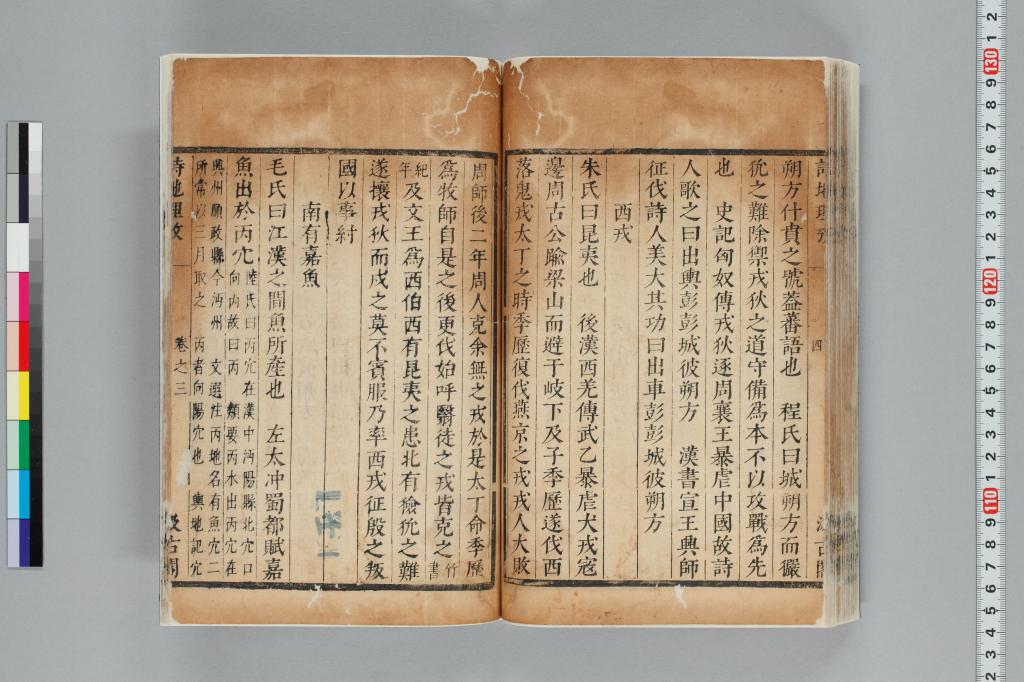 朔方什貴之號蓋蕃語也　程氏曰城朔方而玁
狁之難除禦戎狄之道守備爲本不以攻戰爲先
也　史記匈奴傳戎狄逐周襄王暴虐中國故詩
人歌之曰出輿彭彭城彼朔方　漢書宣王興師
征伐詩人美大其功曰出車彭彭城彼朔方
西戎
朱氏曰昆夷也　後漢西羌傳武乙暴虐犬戎寇
邊周古公踰梁山而避于岐下及子季歷遂伐西
落鬼戎太丁之時季歷復伐燕京之戎戎人大敗
周師後二年周人克余無之戎於是太丁命季歷
爲牧師自是之後更伐始呼翳徒之戎皆克之竹書
紀年及文王爲西伯西有昆夷之患北有獫狁之難
遂攘戎狄而戍之莫不賓服乃率西戎征殷之叛
國以事紂
南有嘉魚
毛氏曰江漢之間魚所產也　左太冲蜀都賦嘉
魚出於丙穴陸氏曰丙穴在漢中沔陽縣北穴口
向丙故曰丙　類要丙水出丙穴在
興州順政縣今沔州　文選注丙地名有魚穴二
所常以三月取之　丙者向陽穴也　輿地記穴
詩地理攷
卷之三
四
汲古閣